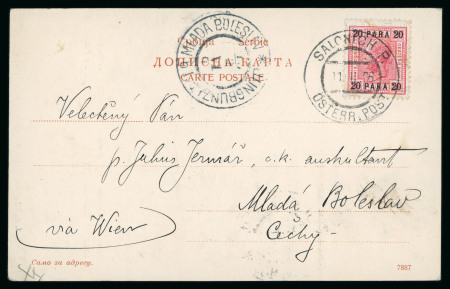 Србија — Serbie
ДОПИСНА КАРТА
CARTE POSTALE
MLADÁ BOLESLAV
20 PARA 20
SALONICH
ÖSTERR. POST
20 PARA 20
Velectěný Pán
p. Julius Jermář, c.k. auskultant
Mladá Boleslav
via Wien
Čechy
Само за адресу.
7887